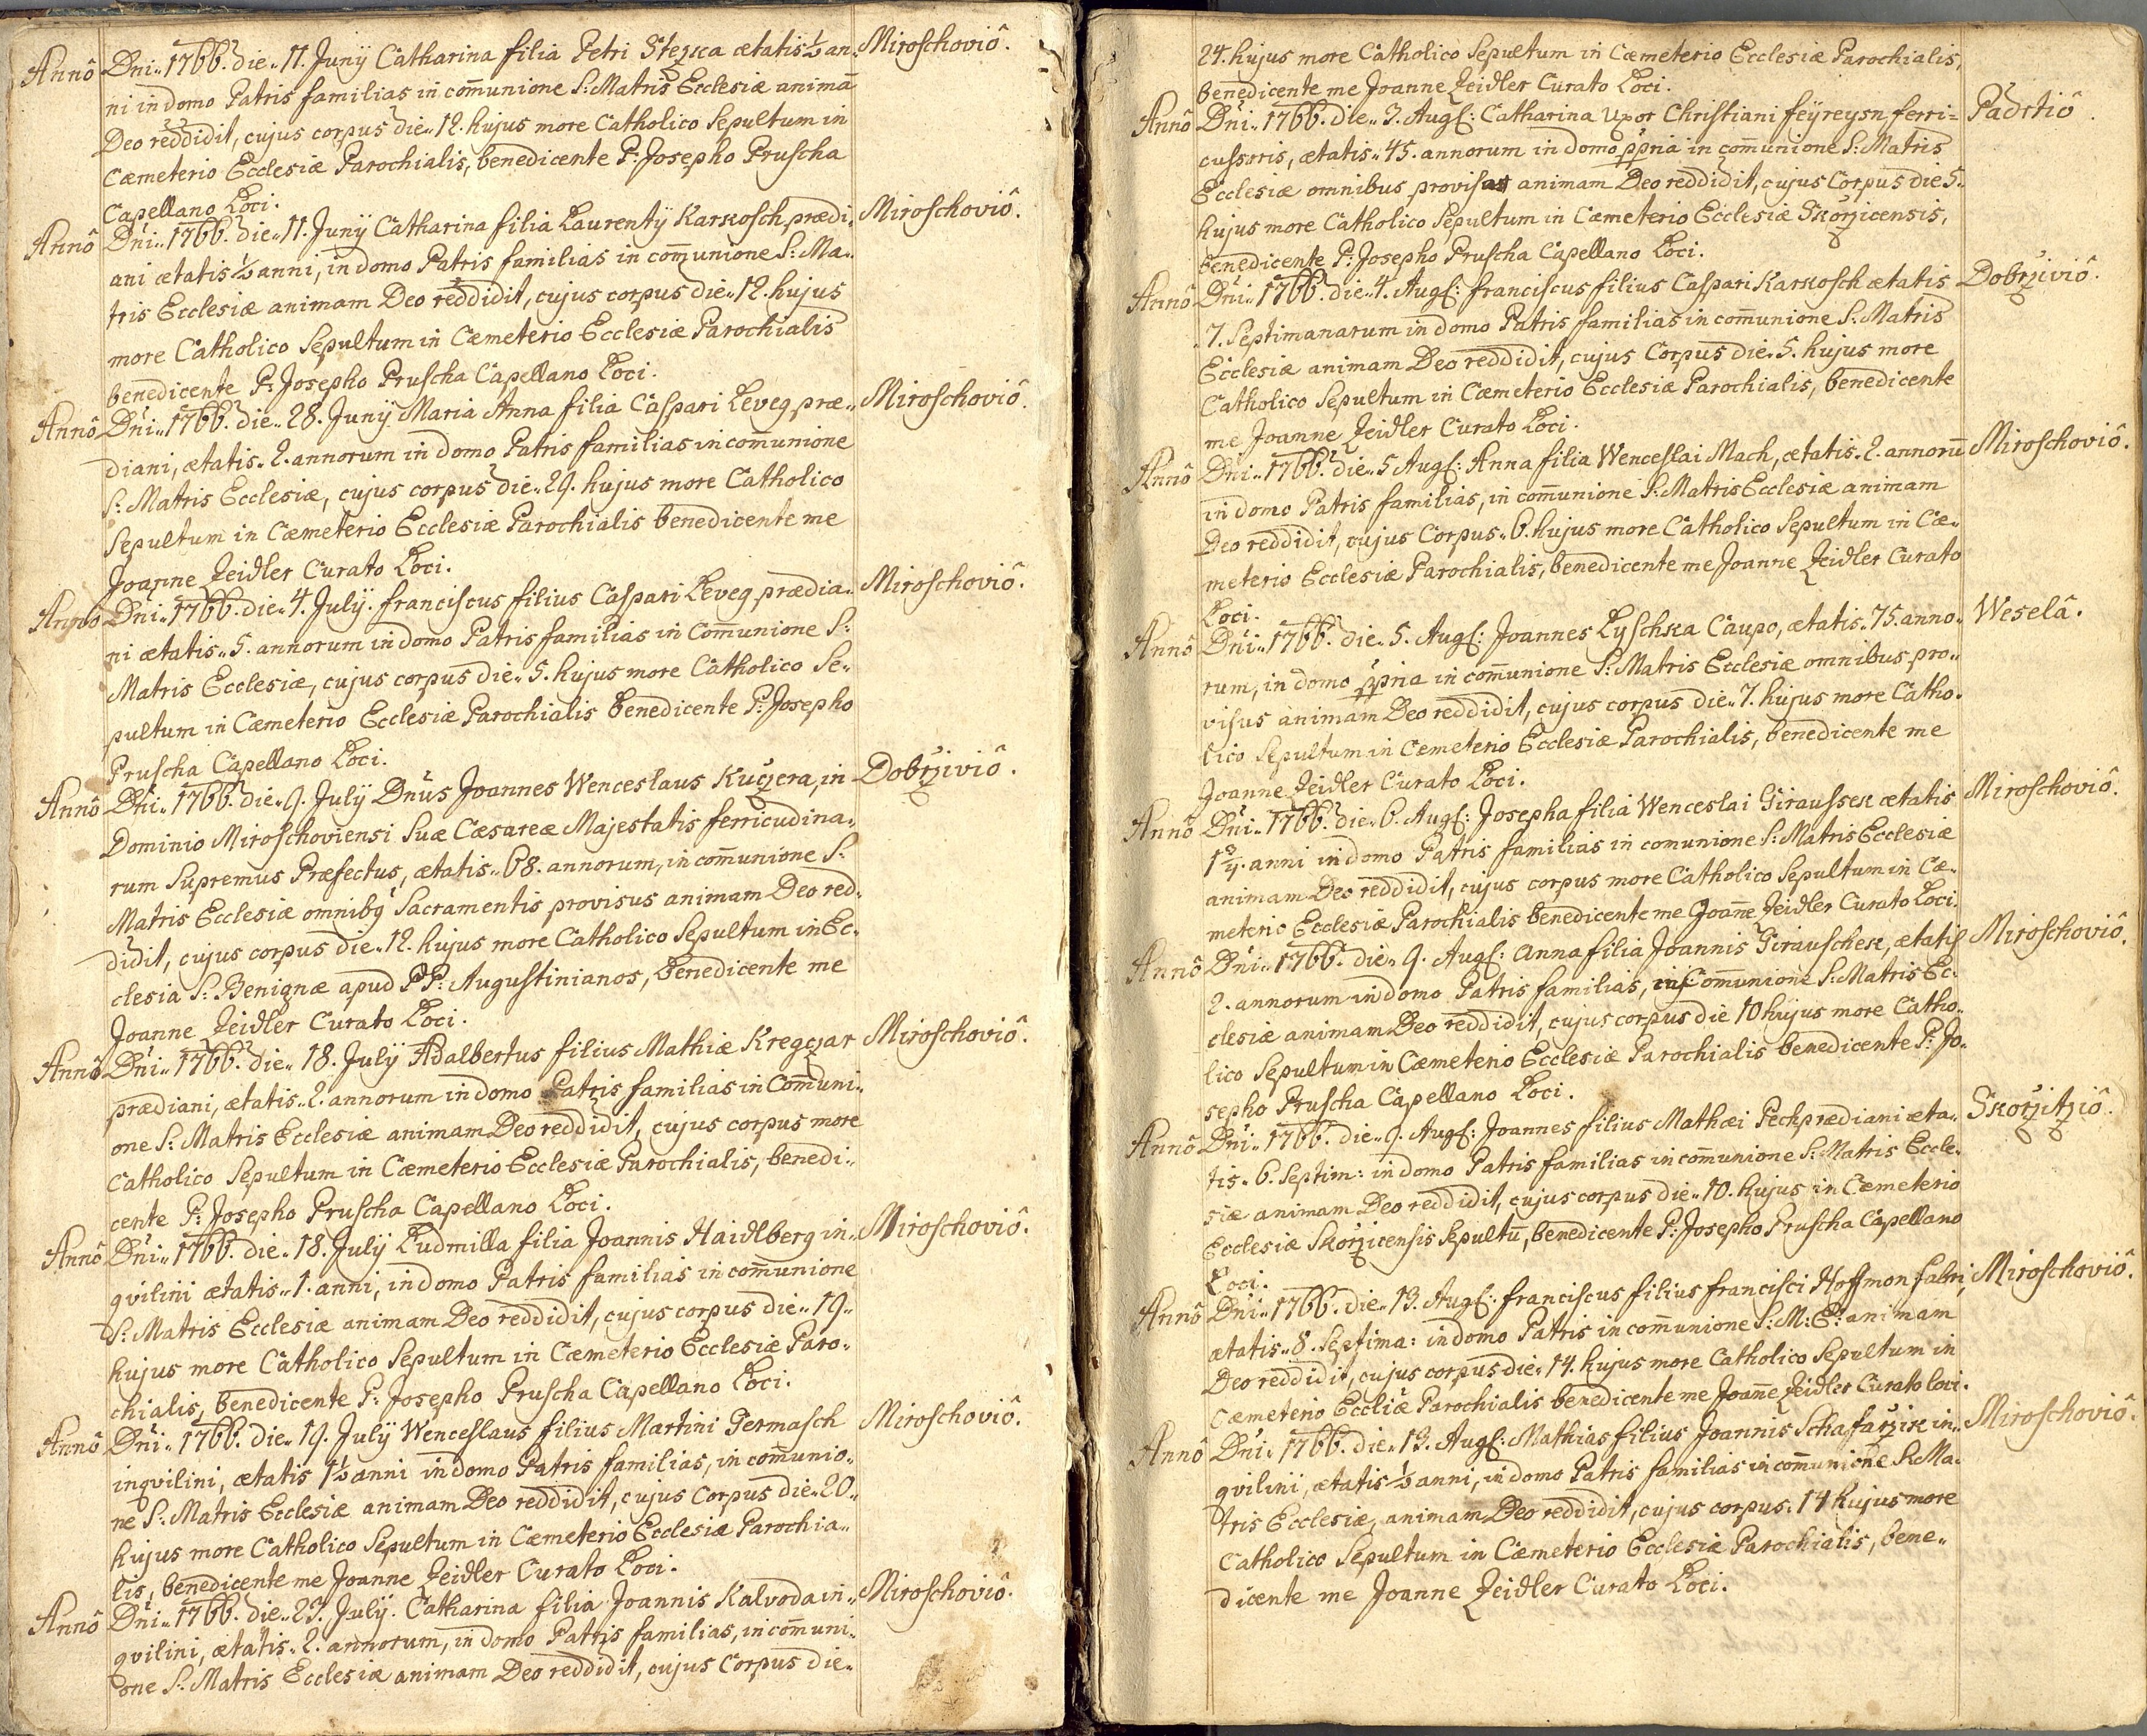 Annô Dni.. 1766. die.. 11. Junÿ Catharina filia Petri Stezka ætatis ½ an- Miroschoviô.
ni in domo Patris familias in com̄unione S: Matris Ecclesiæ animā
Deo reddidit, cujus corpus die.. 12. hujus more Catholico Sepultum in
Cæmeterio Ecclesiæ Parochialis, benedicente P: Josepho Pruscha
Capellano Loci.
Annô Dni.. 1766. die.. 11. Junÿ Catharina filia Laurentÿ Karkosch prædi.. Miroschoviô.
ani ætatis ½ anni, in domo Patris familias in com̄unione S: Ma..
tris Ecclesiæ animam Deo reddidit, cujus corpus die.. 12. hujus
more Catholico Sepultum in Cæmeterio Ecclesiæ Parochialis
benedicente P: Josepho Pruscha Capellano Loci.
Annô Dni.. 1766. die.. 28. Junÿ Maria Anna filia Caspari Leveg præ.. Miroschoviô.
diani, ætatis.. 2. annorum in domo Patris familias in com̄unione
S: Matris Ecclesiæ, cujus corpus die.. 29. hujus more Catholico
Sepultum in Cæmeterio Ecclesiæ Parochialis benedicente me
Joanne Zeidler Curato Loci.
Annô Dni.. 1766. die.. 4. Julÿ. franciscus filius Caspari Leveg prædia.. Miroschoviô.
ni ætatis.. 5. annorum in domo Patris familias in Com̄unione S:
Matris Ecclesiæ, cujus corpus die.. 5. hujus more Catholico Se..
pultum in Cæmeterio Ecclesiæ Parochialis benedicente P: Josepho
Pruscha Capellano Loci.
Annô Dni.. 1766. die.. 9. Julÿ Dnus Joannes Wenceslaus Kuczera, in Dobrziviô.
Dominio Miroschoviensi Suæ Cæsareæ Majestatis ferricudina..
rum Supremus Præfectus, ætatis.. 68. annorum, in com̄unione S:
Matris Ecclesiæ omnibq Sacramentis provisus animam Deo red..
didit, cujus corpus die.. 12. hujus more Catholico Sepultum in Ec..
clesia S: Benignæ apud PP: Augustinianos, benedicente me
Joanne Zeidler Curato Loci.
Annô Dni.. 1766. die.. 18. Julÿ Adalbertus filius Mathiæ Kregczar Miroschoviô.
prædiani, ætatis.. 2. annorum in domo Patris familias in Com̄uni..
one S: Matris Ecclesiæ animam Deo reddidit, cujus corpus more
Catholico Sepultum in Cæmeterio Ecclesiæ Parochialis, benedi..
cente P: Josepho Pruscha Capellano Loci.
Annô Dni.. 1766. die.. 18. Julÿ Ludmilla filia Joannis Haidlberg in.. Miroschoviô.
qvilini ætatis.. 1. anni, in domo Patris familias in com̄unione
S: Matris Ecclesiæ animam Deo reddidit, cujus corpus die.. 19..
hujus more Catholico Sepultum in Cæmeterio Ecclesiæ Paro..
chialis, benedicente P: Josepho Pruscha Capellano Loci.
Annô Dni.. 1766. die.. 19. Julÿ Wenceslaus filius Martini Germasch Miroschoviô.
inqvilini, ætatis 1½ anni in domo Patris familias, in com̄unio..
ne S: Matris Ecclesiæ animam Deo reddidit, cujus Corpus die.. 20..
hujus more Catholico Sepultum in Cæmeterio Ecclesiæ Parochia..
lis, benedicente me Joanne Zeidler Curato Loci.
Annô Dni.. 1766. die.. 23. Julÿ. Catharina filia Joannis Kalvoda in.. Miroschoviô.
qvilini, ætatis.. 2. annorum, in domo Patris familias, in com̄uni..
one S: Matris Ecclesiæ animam Deo reddidit, cujus Corpus die..
24. hujus more Catholico Sepultum in Cæmeterio Ecclesiæ Parochialis,
benedicente me Joanne Zeidler Curato Loci.
Annô Dni.. 1766. die.. 3. Augs: Catharina Uxor Christiani feÿreysn ferri= Padrtiô.
cussoris, ætatis.. 45. annorum in domo ppria in com̄unione S: Matris
Ecclesiæ omnibus provisa animam Deo reddidit, cujus Corpus die 5.
hujus more Catholico Sepultum in Cæmeterio Ecclesiæ Skorzicensis,
benedicente P: Josepho Pruscha Capellano Loci.
Annô Dni.. 1766. die.. 4. Augs: franciscus filius Caspari Karkosch ætatis Dobrziviô.
7. Septimanarum in domo Patris familias in com̄unione S: Matris
Ecclesiæ animam Deo reddidit, cujus Corpus die.. 5. hujus more
Catholico Sepultum in Cæmeterio Ecclesiæ Parochialis, benedicente
me Joanne Zeidler Curato Loci.
Annô Dni.. 1766. die.. 5 Augs: Anna filia Wenceslai Mach, ætatis.. 2. annorū Miroschoviô.
in domo Patris familias, in com̄unione S: Matris Ecclesiæ animam
Deo reddidit, cujus Corpus.. 6. hujus more Catholico Sepultum in Cæ..
meterio Ecclesiæ Parochialis, benedicente me Joanne Zeidler Curato
Loci.
Annô Dni.. 1766. die.. 5. Augs: Joannes Lyschka Caupo, ætatis.. 75. anno.. Weselâ.
rum, in domo ppria in com̄unione S: Matris Ecclesiæ omnibus pro..
visus animam Deo reddidit, cujus corpus die.. 7. hujus more Catho..
lico Sepultum in Cæmeterio Ecclesiæ Parochialis, benedicente me
Joanne Zeidler Curato Loci.
Annô Dni.. 1766. die.. 6. Augs: Josepha filia Wenceslai Giraussek ætatis Miroschoviô.
1¾. anni in domo Patris familias in comunione S: Matris Ecclesiæ
animam Deo reddidit, cujus corpus more Catholico Sepultum in Cæ..
meterio Ecclesiæ Parochialis benedicente me Joan̄e Zeidler Curato Loci.
Annô Dni.. 1766. die.. 9. Augs: Anna filia Joannis Girauschek, ætatis Miroschoviô.
2. annorum in domo Patris familias, in Com̄unione S: Matris Ec..
clesiæ animam Deo reddidit, cujus corpus die 10 hujus more Catho..
lico Sepultum in Cæmeterio Ecclesiæ Parochialis benedicente P: Jo..
sepho Pruscha Capellano Loci.
Annô Dni.. 1766. die.. 9. Augs: Joannes filius Mathæi Pech prædiani æta.. Skorzitziô.
tis.. 6. Septim: in domo Patris familias in com̄unione S: Matris Eccle..
siæ animam Deo reddidit, cujus corpus die.. 10. hujus in Cæmeterio
Ecclesiæ Skorzicensis Sepultū, benedicente P: Josepho Pruscha Capellano
Loci.
Annô Dni.. 1766. die.. 13. Augs: franciscus filius francisci Hoffmon fabri, Miroschoviô.
ætatis.. 8. Septima: in domo Patris in com̄unione S: M: E: animam
Deo reddidit, cujus corpus die.. 14. hujus more Catholico Sepultum in
Cæmeterio Eccliæ Parochialis benedicente me Joan̄e Zeidler Curato loci.
Annô Dni.. 1766. die.. 13. Augs: Mathias filius Joannis Schafarzik in.. Miroschoviô.
qvilini, ætatis ½ anni, in domo Patris familias in com̄unione S: Ma..
tris Ecclesiæ, animam Deo reddidit, cujus corpus. 14 hujus more
Catholico Sepultum in Cæmeterio Ecclesiæ Parochialis, bene..
dicente me Joanne Zeidler Curato Loci.